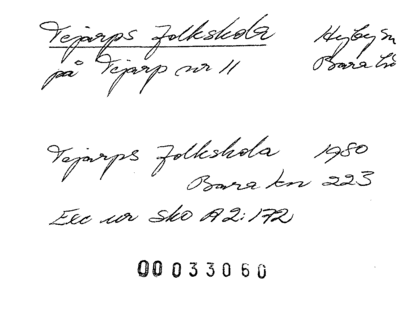 Tejarps folkskola Hyby sn
på Tejarp nr 11 Bara hd
Tejarps folkskola 1980
Bara kn 223
Exc ur sko A2:172
00033060